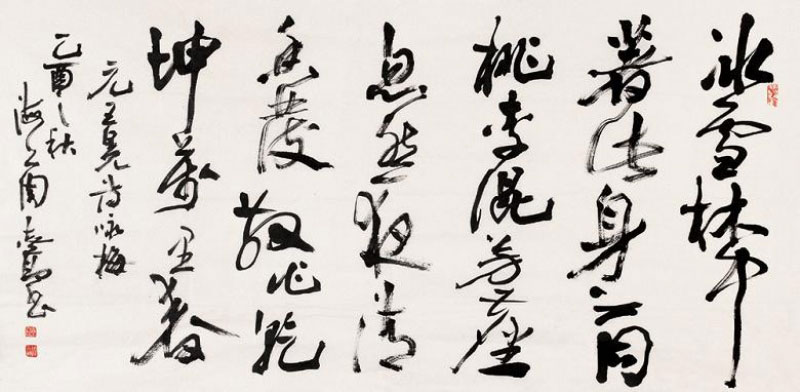 冰雪林中
著此身不同
桃李混芳塵
忽然一夜清
香發散作乾
坤萬里春
元王冕詩詠梅
乙酉之秋
海上周志高书